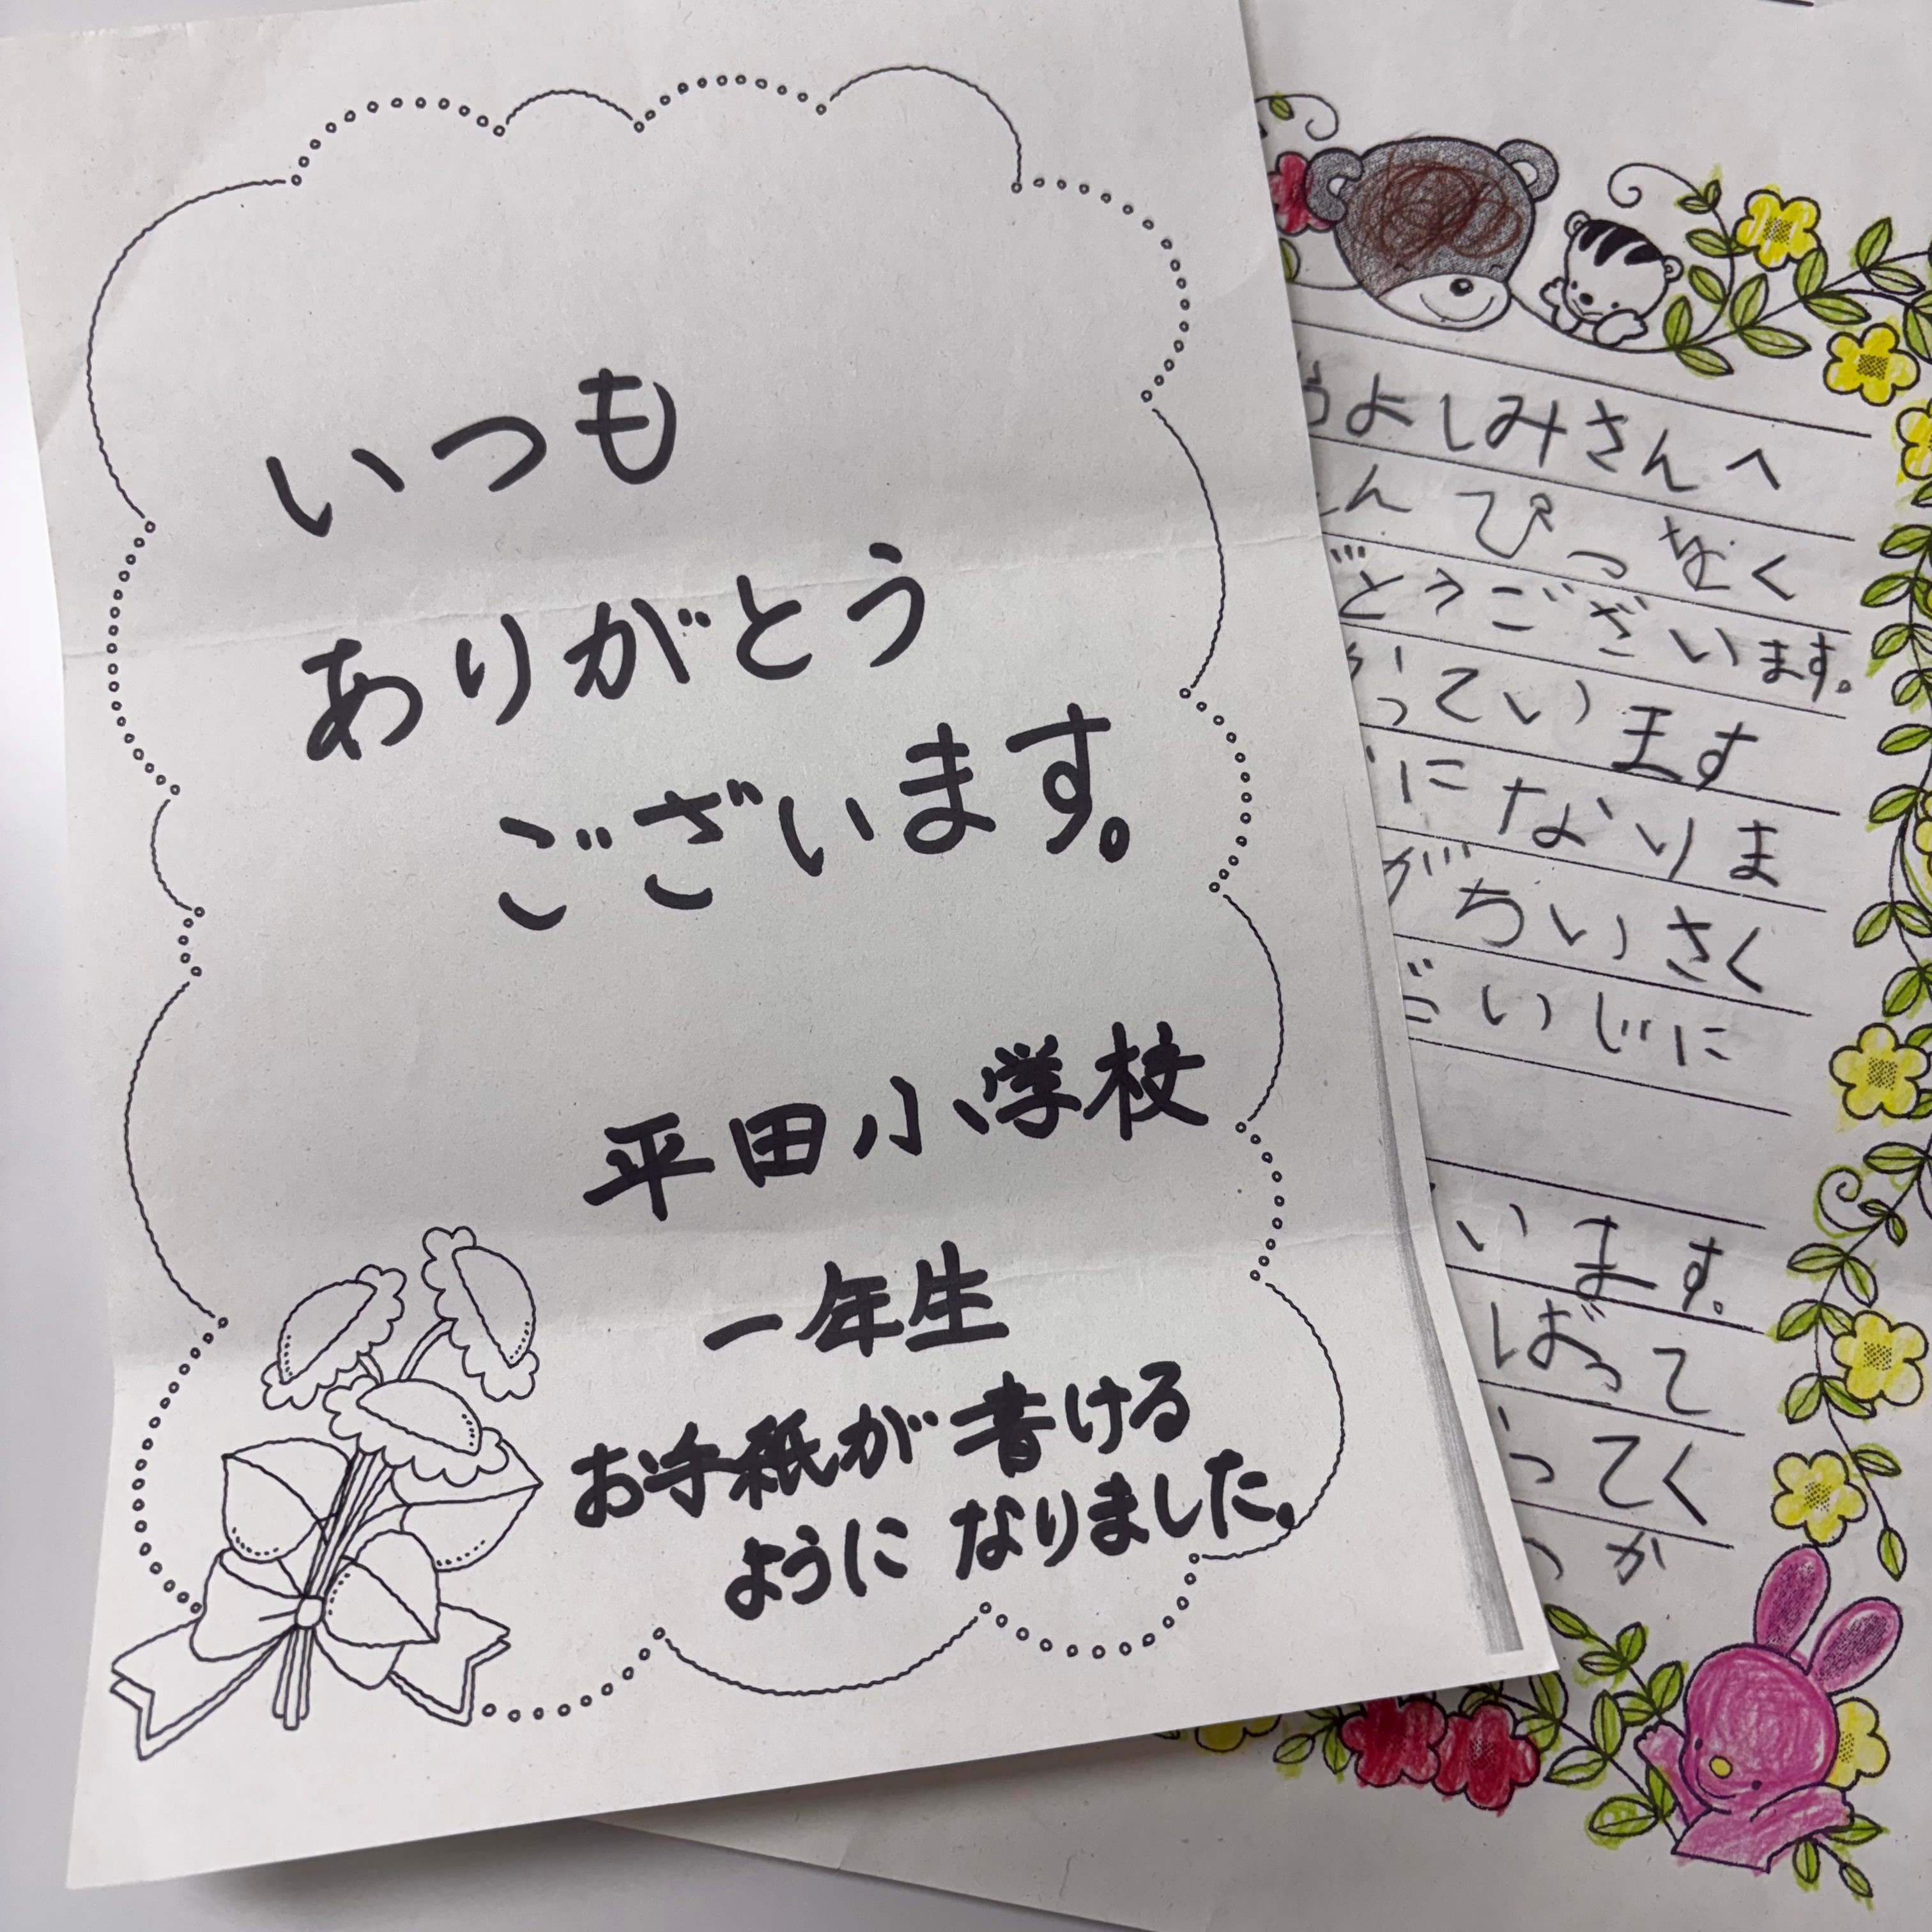 いつも
ありがとう
ございます。
平田小学校
一年生
お手紙が書ける
ようになりました。
よしみさんへ
んぴつをく
どうございます。
っています
になりま
がちいさく
だいじに
います。
ばって
ってく
か